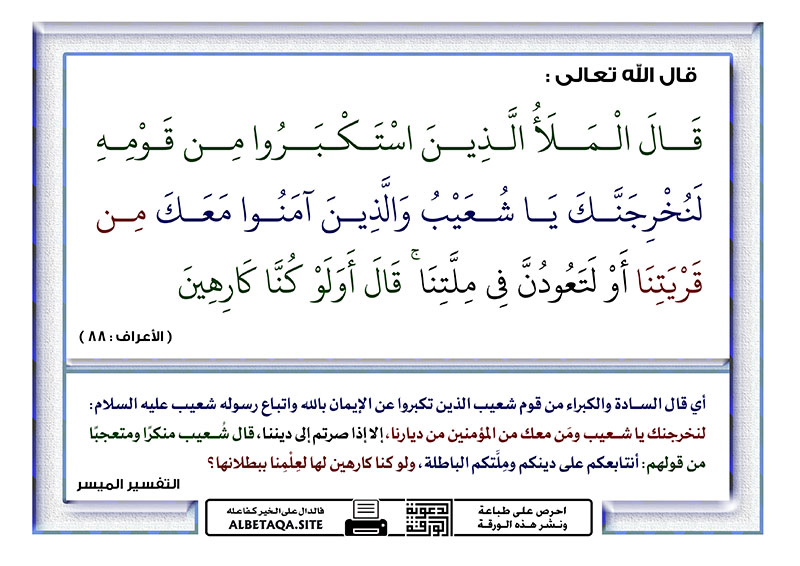 قال الله تعالى :
قَـالَ الْـمَـلَأُ الَّـذِيـنَ اسْـتَـكْـبَـرُوا مِـن قَـوْمِـهِ
لَنُخْرِجَنَّـكَ يَـا شُـعَـيْـبُ وَالَّذِيـنَ آمَنُـوا مَعَـكَ مِـن
قَرْيَتِنَا أَوْ لَتَعُودُنَّ فِي مِلَّتِنَا ۚ قَالَ أَوَلَوْ كُنَّا كَارِهِينَ
( الأعراف : ٨٨ )
أي قال السـادة والكبراء من قوم شعيب الذين تكبروا عن الإيمان بالله واتباع رسوله شعيب عليه السلام :
لنخرجنك يا شـعيب ومَن معك من المؤمنين من ديارنا، إلا إذا صرتم إلى ديننا ، قال شُـعيب منكرًا ومتعجبًا
من قولهم : أنتابعكم على دينكم ومِلَّتكم الباطلة ، ولو كنا كارهين لها لعِلْمِنا ببطلانها ؟
التفسير الميسر
احرص على طباعة
ونشر هذه الورقة
الورقة
الدعوية
فالدال على الخير كفاعله
ALBETAQA.SITE